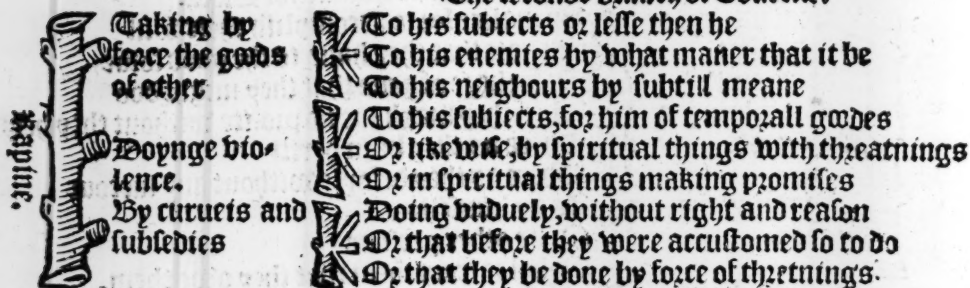 Rapine.
Taking by
force the goods
of other
To his subiects or lesse then he
To his enemies by what maner that it be
To his neigbours by subtill meane
Doynge vio-
lence.
To his subiects, for him of temporall goodes
Or likewise, by spiritual things with threatnings
Or in spiritual things making promises
By curueis and
subsedies
Doing vnduely, without right and reason
Or that before they were accustomed so to do
Or that they be done by force of thretnings.